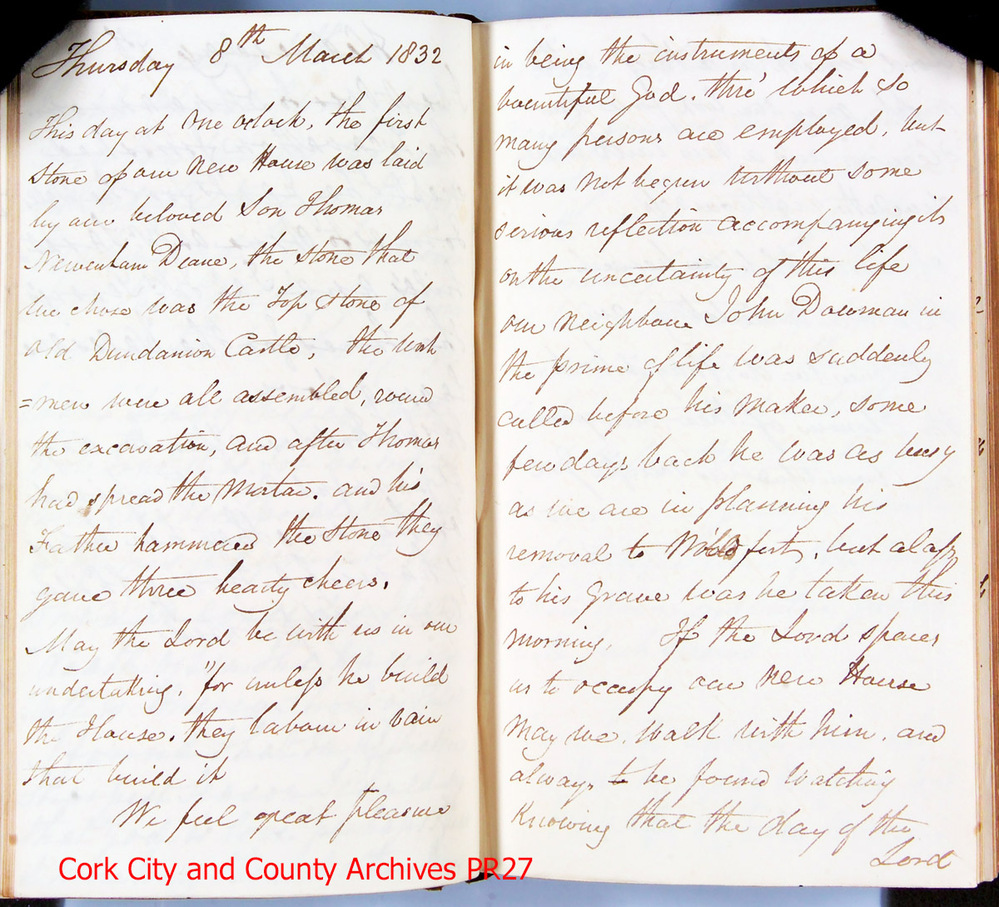 Thursday 8th March 1832
This day at one oclock, the first
stone of our new House was laid
by our beloved Son Thomas
Newenham Deane, the stone that
we chose was the Top stone of
old Dundanion Castle, the work
=men were all assembled, round
the excavation, and after Thomas
had spread the mortar. and his
Father hammered the stone they
gave three hearty cheers.
May the Lord be with us in our
undertaking, "for unless he build
the House. they labour in vain
that build it
We feel great pleasure
in being the instruments of a
bountiful God. thro' which so
many persons are employed, but
it was not begun without some
serious reflection accompanying it
on the uncertainty of this life
our neighbour John Dowman in
the prime of life was suddenly
called before his maker, some
few days back he was as busy
as we are in planning his
removal to fort, but alass
to his Grave was he taken this
morning. If the Lord spares
us to occupy our new House
may we. walk with him. and
always to be found watching
Knowing that the day of the
Lord
Cork City and County Archives PR27